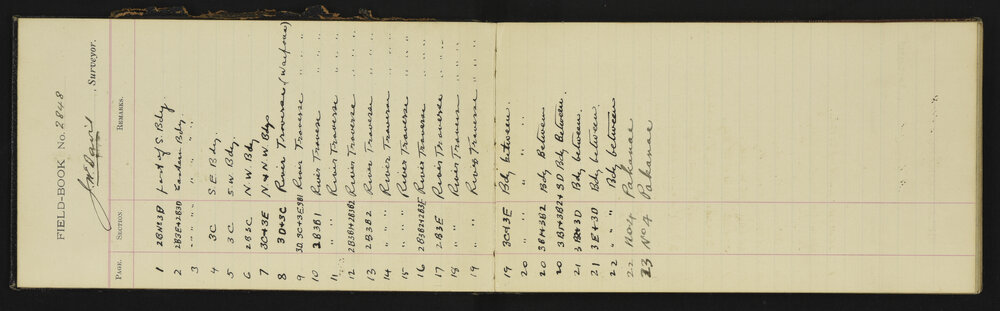 FIELD-BOOK No. 2848
J. W. Davis, Surveyor.
PAGE. SECTION. REMARKS.
1 2BN+3D part of S. Bdy.
2 2B3E+2B3D Eastern Bdy.
3 " " " " "
4 3C S.E. Bdy
5 3C S.W. Bdy.
6 2B3C N.W. Bdy
7 3C+3E N & N.W. Bdys
8 3D+3C River Traverse (Waipoua)
9 3D 3C+3E3B1 River Traverse " "
10 2B3B1 River Traverse " "
11 " " River Traverse " "
12 2B3B1+2B3B2 River Traverse " "
13 2B3B2 River Traverse " "
14 " " River Traverse " "
15 " " River Traverse " "
16 2B3B2+2B3E River Traverse " "
17 2B3E River Traverse " "
18 " " River Traverse " "
19 " River Traverse " "
19 3C+3E Bdy between.
20 " " " "
20 3B1+3B2 Bdy between
20 3B1+3B2+3D Bdy between.
21 3B2+3D Bdy between.
21 3E+3D Bdy between.
22 " " " Bdy between
22 No4 Pakanae
23 No 4 Pakanae